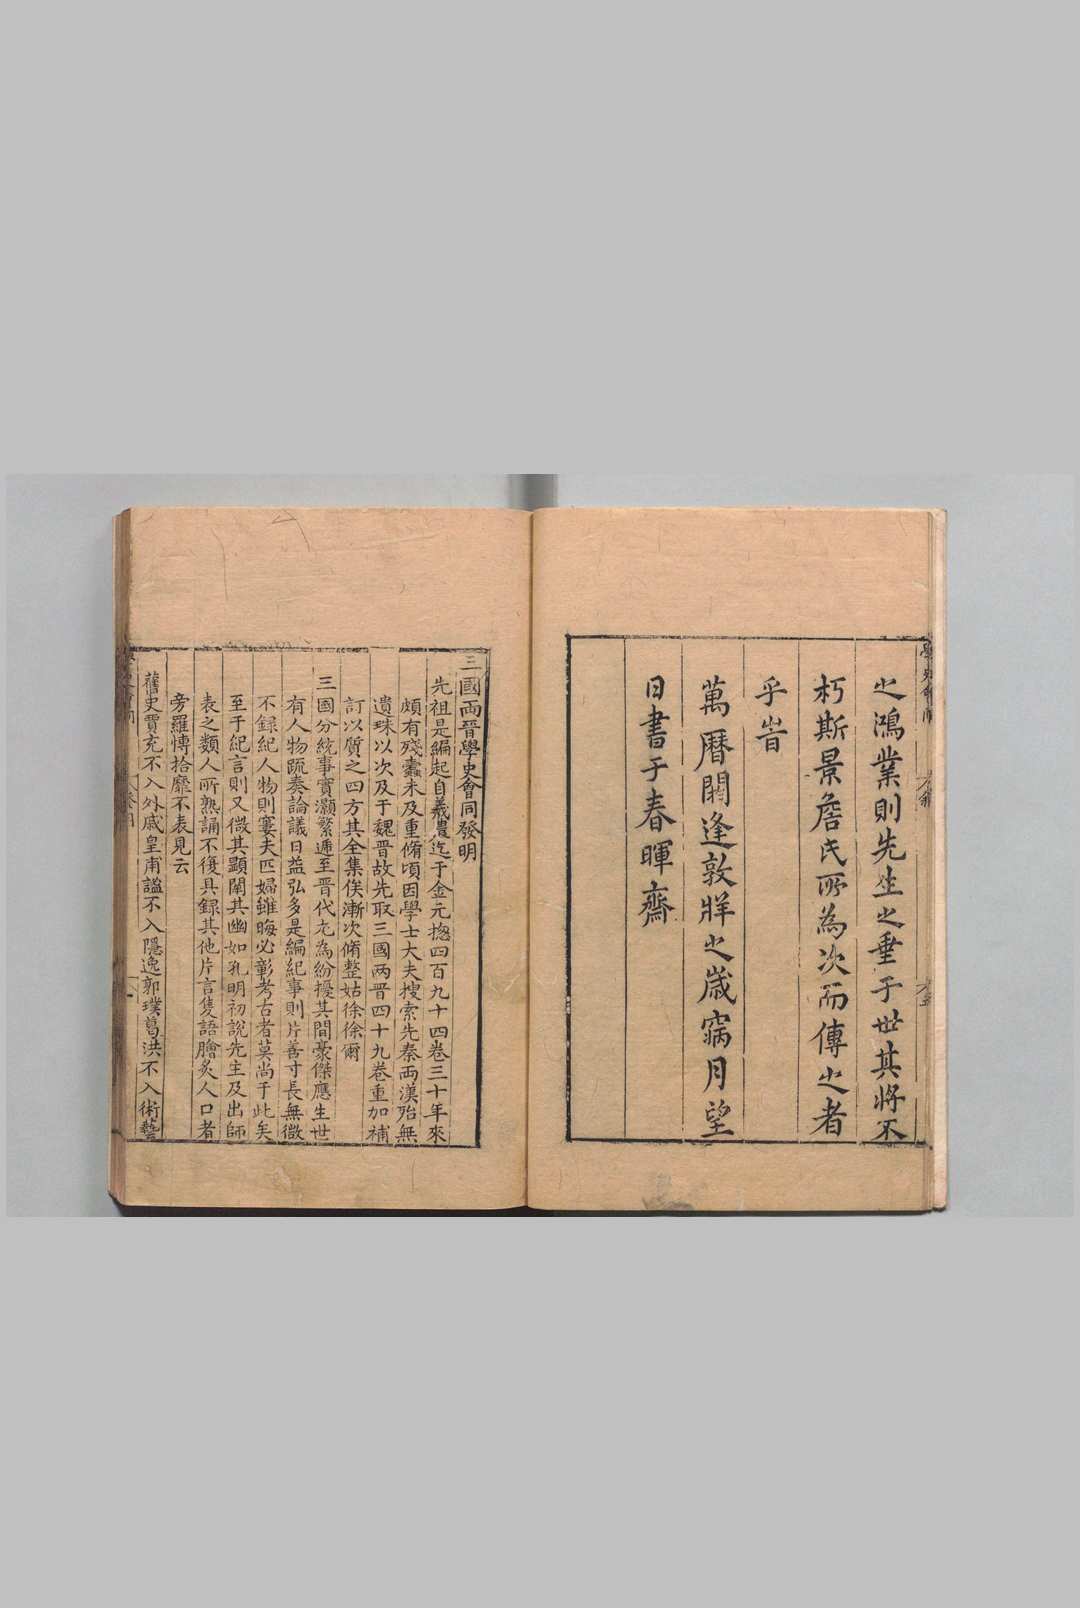 之鴻業則先生之垂于世其將不
朽斯景詹氏所為次而傳之者
乎旹
萬曆閼逢敦牂之歲窉月望
日書于春暉齋
三國兩晉學史會同發明
先祖是編起自羲農迄于金元揔四百九十四卷三十年來
頗有殘蠹未及重脩頃因學士大夫搜索先秦兩漢殆無
遺珠以次及于魏晉故先取三國两晉四十九卷重加補
訂以質之四方其全集俟漸次脩整姑徐徐爾
三國分統事實灝繁遞至晉代尤為紛擾其間豪傑應生世
有人物疏奏論議日益弘多是編紀事則片善寸長無微
不錄紀人物則寠夫匹婦雖晦必彰考古者莫尚于此矣
至于紀言則又微其顯闡其幽如孔明初說先主及出師
表之類人所熟誦不復具録其他片言隻語膾炙人口者
旁羅博拾靡不表見云
舊史賈充不入外戚皇甫謐不入隱逸郭璞葛洪不入術藝